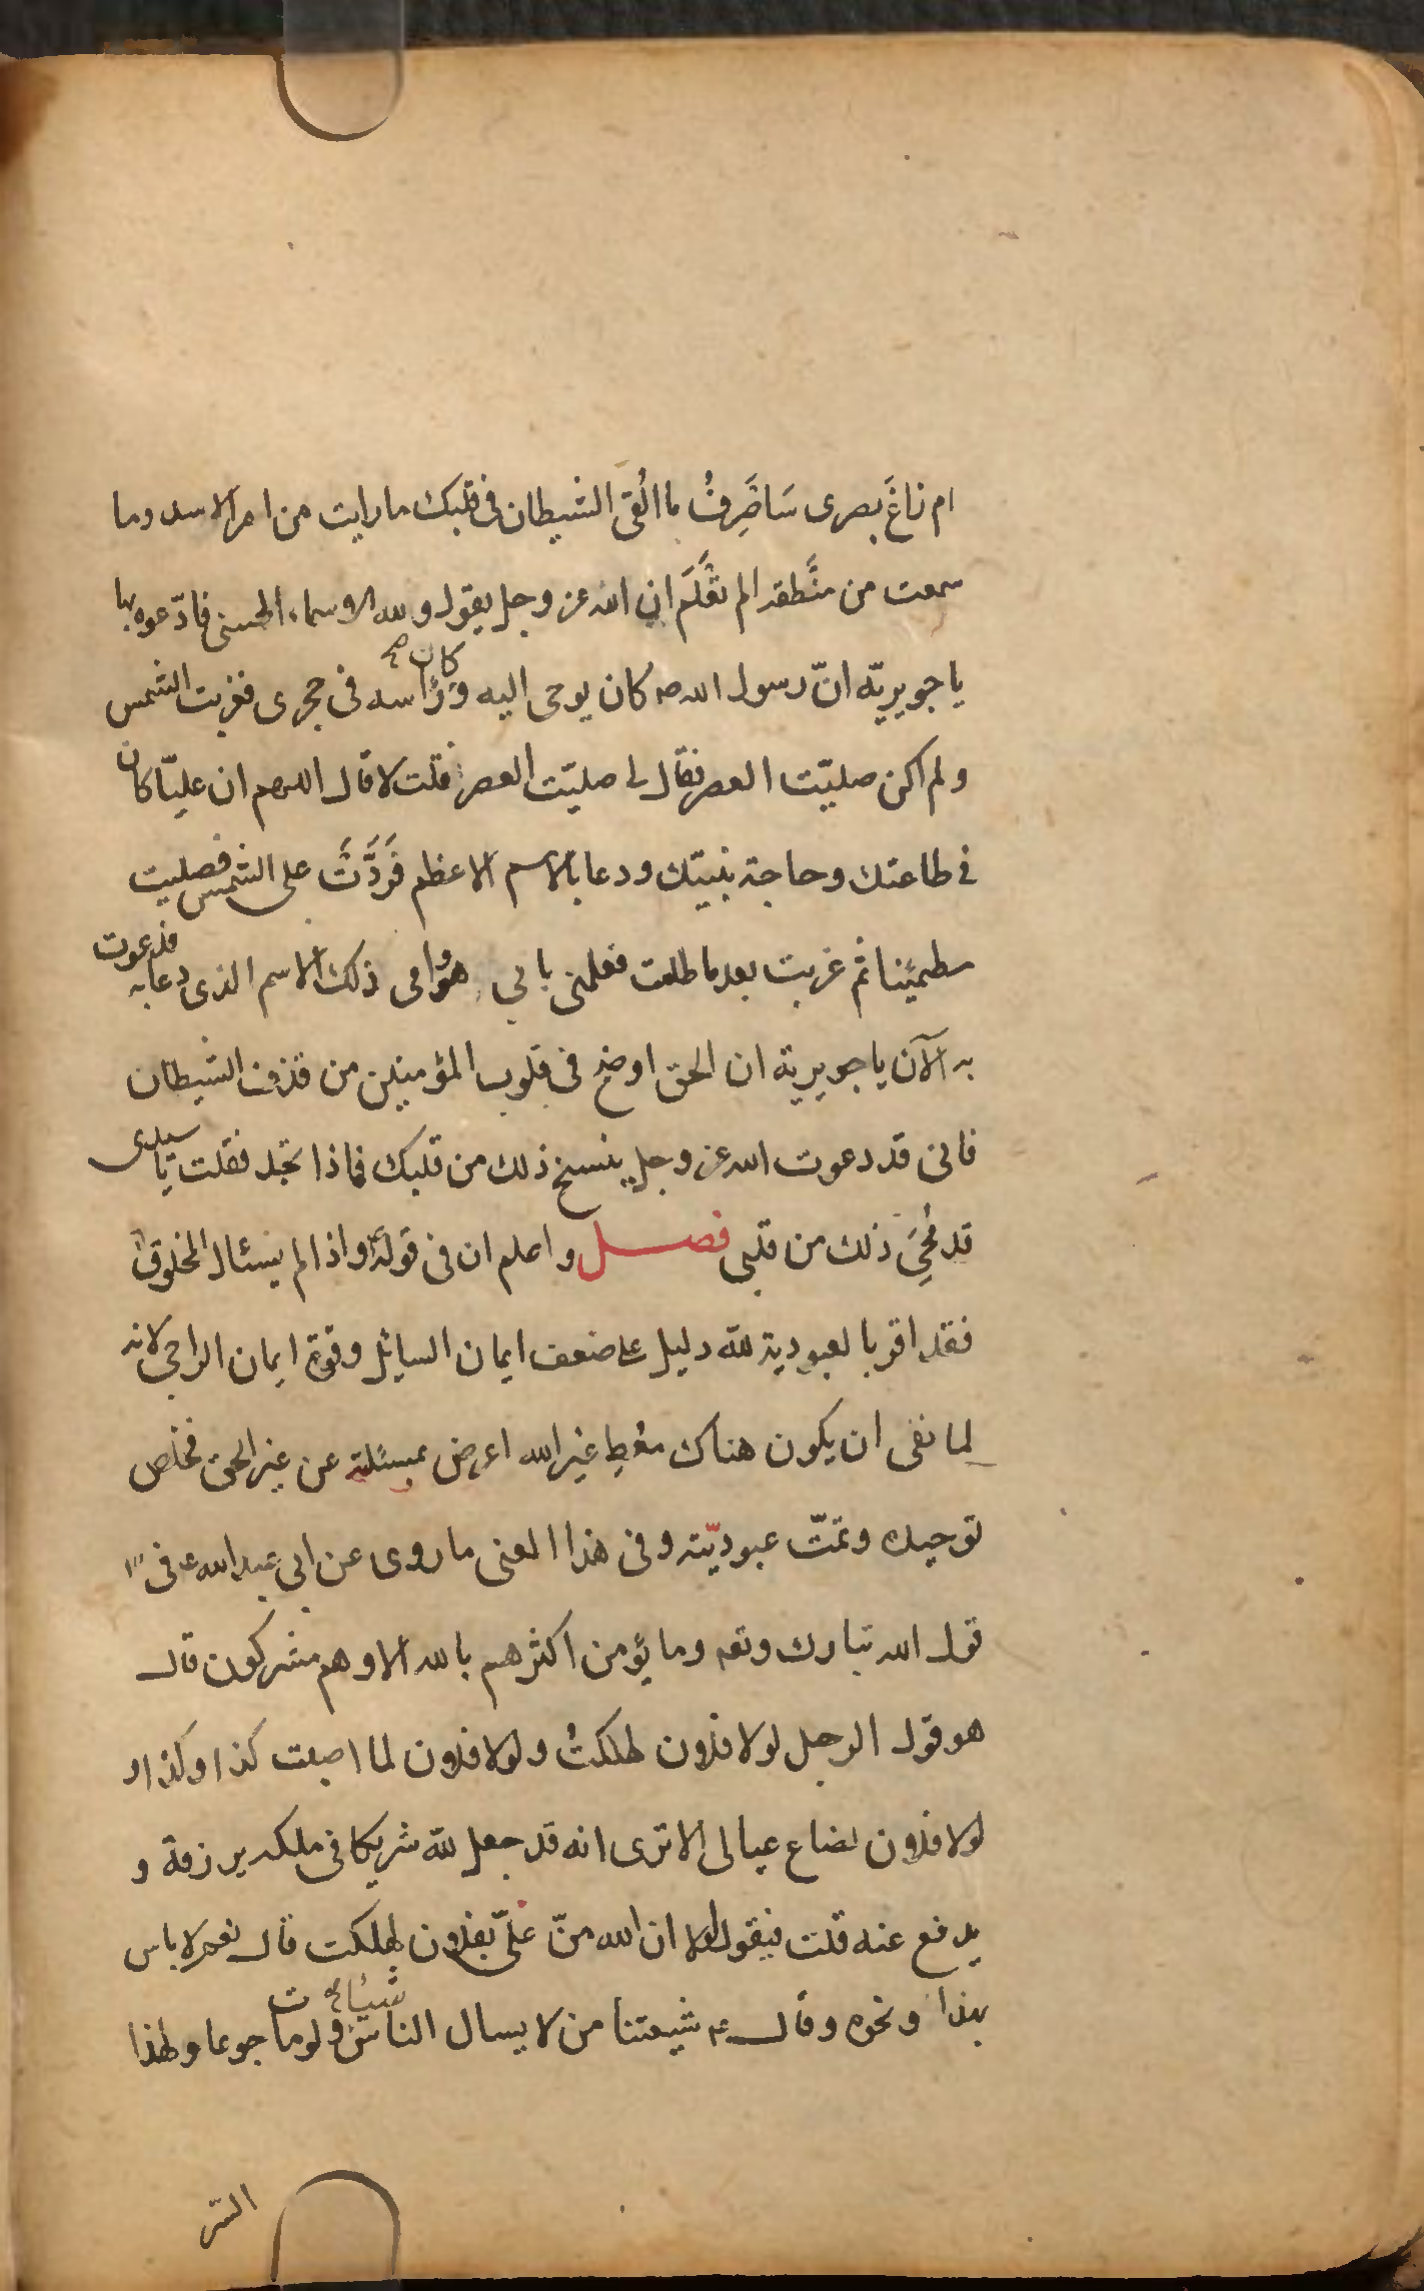 ام زاغَ بصرى سَاصَرِفُ ما القى الشيطان فى قلبك ما رايت من امر الاسد وما
سمعت من منَطقه الم تعْلَم ان الله عز وجل يقول ولله الاسماء الحسنى فادعوه بها
يا جويريّه انّ رسول الله ص كان يوحى اليه وكان راسه فى حجرى فغربت الشمس
ولم اكن صليّت العصر فقال لى صليّت العصر فقلت لا قال اللهم ان عليّا كان
فى طاعتك وحاجة نبيّك ودعا بالاسم الاعظم فَرَدَّتَ على الشمس فصليت
مطمئنا ثم غربت بعد ما طلعت فعلمنى بابى هو وامى ذلك الاسم الذى دعا به فدعوت
به الآن يا جويرية ان الحق اوضح فى قلوب المؤمنين من قذف الشيطان
فانى قد دعوت الله عز وجل ينسخ ذلك من قلبك فماذا تجد فقلت يا سيدى
قد مُحِىَ ذلك من قلبى فصل واعلم ان فى قوله واذا لم يسئال المخلوق
فقد اقر بالعبودية لله دليل على ضعف ايمان السائل وقوة ايمان الراجى لانه
لما نفى ان يكون هناك معُطٍ غير الله اعرض بمسئلته عن غير الحق فخلص
توحيده وتمّت عبوديّته وفى هذا المعنى ما روى عن ابى عبد الله ع فى
قول الله تبارك وتعـ وما يؤمن اكثرهم بالله الا وهم مشركون قال
هو قول الرجل لولا فلان لهلكتُ ولولا فلان لما اصبت كذا وكذا و
لولا فلان لضاع عيالى الا ترى انه قد جعل لله شريكا فى ملكه يرزقه و
يدفع عنه قلت فيقول لولا ان الله منّ علىّ بفلان لهلكت قال نعم لا باس
بهذا ونحوه وقال ع شيعتنا من لا يسال الناس شيئا ولو مات جوعا ولهذا
الستر